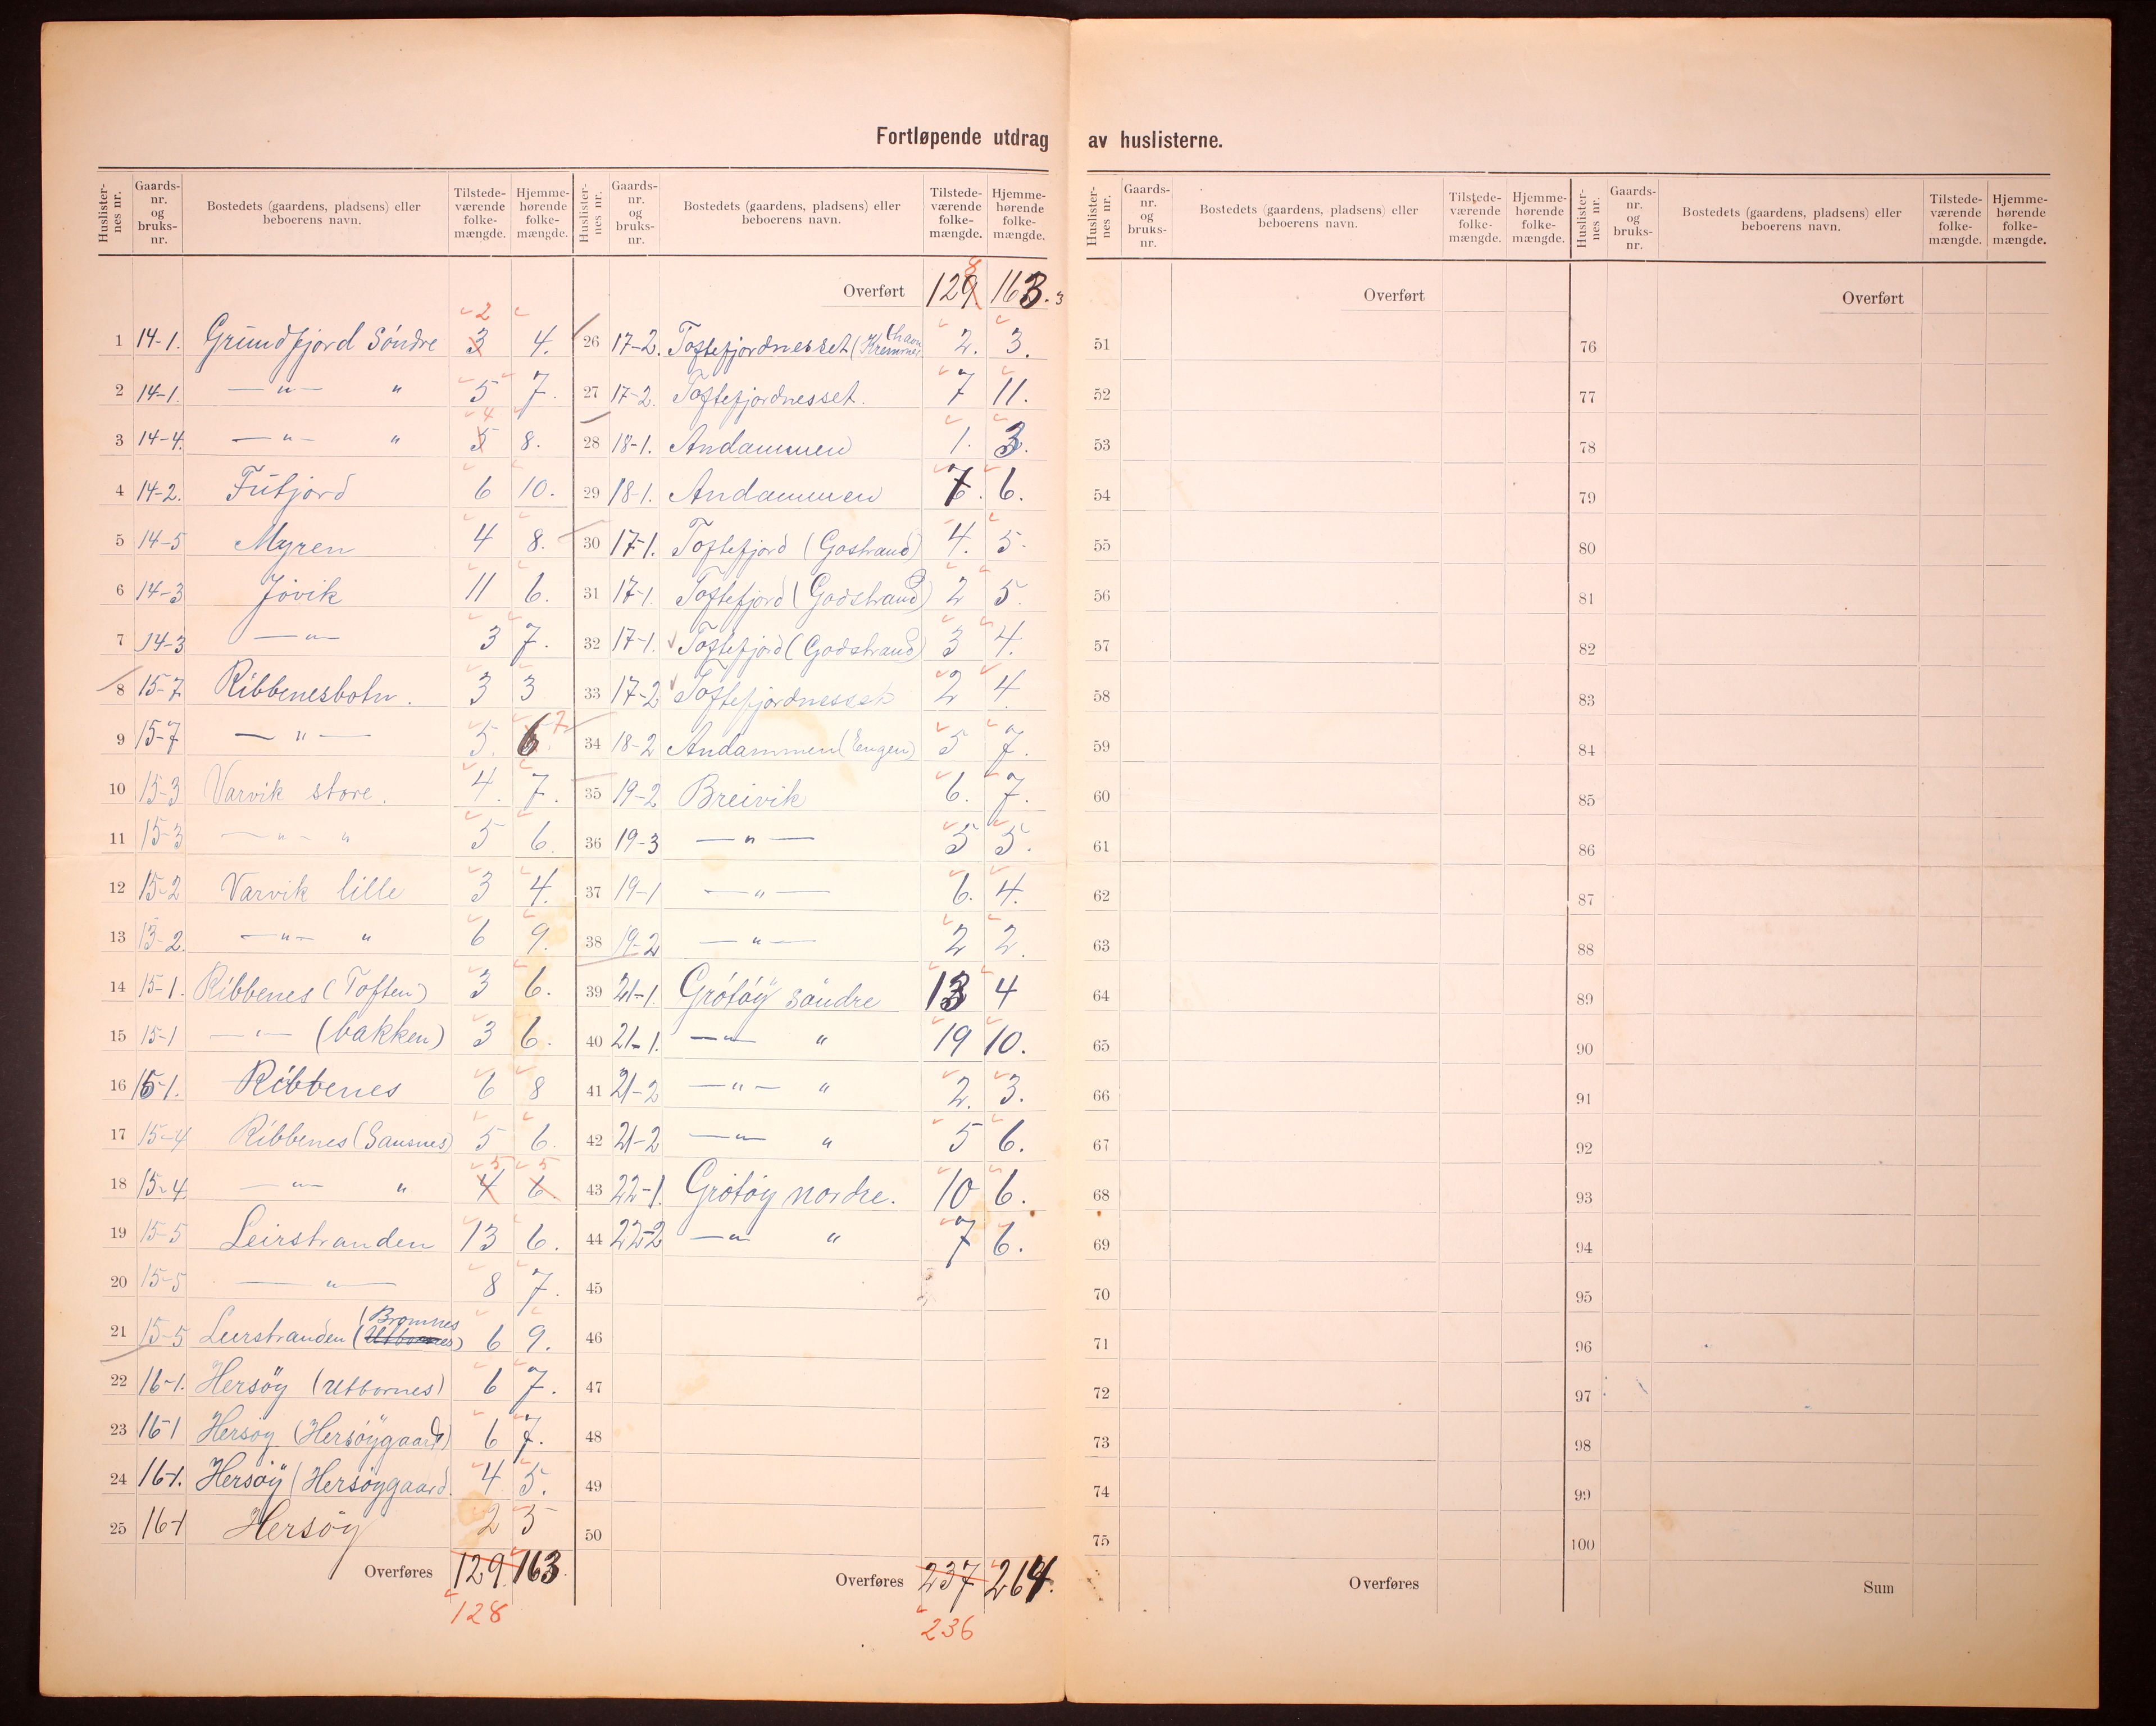 Fortløpende utdrag av huslisterne.
Huslisternes nr. Gaards-nr. og bruks-nr. Bostedets (gaardens, pladsens) eller beboerens navn. Tilstede-værende folke-mængde. Hjemme-hørende folke-mængde.
1 14-1. Grundfjord Söndre 3 2 4.
2 14-1. — " — " 5 7.
3 14-4. — " — " 5 4 8.
4 14-2. Futjord 6 10.
5 14-5 Myren 4 8.
6 14-3 Jövik 11 6.
7 14-3 — " — 3 7.
8 15-7 Ribbenesbotn. 3 3
9 15-7 — " — 5. 6. 7
10 15-3 Varvik store. 4. 7.
11 15-3 — " — " 5 6.
12 15-2 Varvik lille 3 4.
13 15-2. — " — " 6 9.
14 15-1. Ribbenes (Toften) 3 6.
15 15-1 — " — (bakken) 3 6.
16 15-1. Ribbenes 6 8
17 15-4 Ribbenes (Sansnes) 5 6.
18 15-4 — " — " 4 5 6 5
19 15-5 Leirstranden 13 6.
20 15-5 — " — 8 7.
21 15-5 Leirstranden (Utbornes) (Bromnes 6 9.
22 16-1. Hersöy (Utbornes) 6 7.
23 16-1 Hersöy (Hersöygaard) 6 7.
24 16-1. Hersöy (Hersöygaard. 4 5.
25 16-1 Hersöy 2 5
Overføres 129. 163.
128
Huslisternes nr. Gaards-nr. og bruks-nr. Bostedets (gaardens, pladsens) eller beboerens navn. Tilstede-værende folke-mængde. Hjemme-hørende folke-mængde.
Overført 129 8 163. 3
26 17-2. Toftefjordnesset (Kremmer havn 2. 3.
27 17-2. Toftefjordnesset. 7 11.
28 18-1. Andammen 1. 3.
29 18-1. Andammen 7. 6.
30 17-1. Toftefjord (Gostrand) 4. 5.
31 17-1 Toftefjord (Godstrand) 2 5.
32 17-1. Toftefjord (Godstrand) 3 4.
33 17-2 Toftefjordnesset 2 4.
34 18-2 Andammen (Engen) 5 7.
35 19-2 Breivik 6. 7.
36 19-3 — " — 5 5.
37 19-1 — " — 6. 4.
38 19-2 — " — 2 2.
39 21-1. Grötöy söndre 13 4
40 21-1. — " — " 19 10.
41 21-2 — " — " 2. 3.
42 21-2 — " — " 5 6.
43 22-1. Grötöy nordre. 10 6.
44 22-2 — " — " 7 6.
45
46
47
48
49
50
Overføres 237 264.
236
Huslisternes nr. Gaards-nr. og bruks-nr. Bostedets (gaardens, pladsens) eller beboerens navn. Tilstede-værende folke-mængde. Hjemme-hørende folke-mængde.
Overført
51
52
53
54
55
56
57
58
59
60
61
62
63
64
65
66
67
68
69
70
71
72
73
74
75
Overføres
Huslisternes nr. Gaards-nr. og bruks-nr. Bostedets (gaardens, pladsens) eller beboerens navn. Tilstede-værende folke-mængde. Hjemme-hørende folke-mængde.
Overført
76
77
78
79
80
81
82
83
84
85
86
87
88
89
90
91
92
93
94
95
96
97
98
99
100
Sum